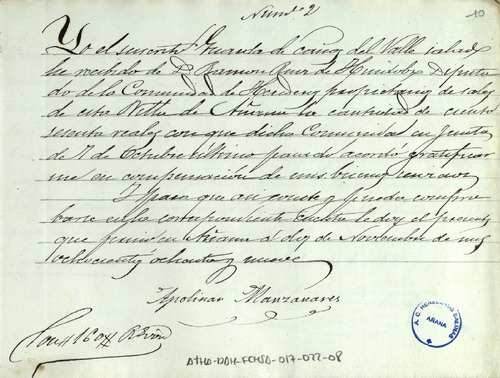 Num.º 2
10
Yo el suscrito Guarda de caños del Valle salado
he recibido de D. Ramon Ruiz de Huidobro Diputa
do de la Comunidad de Herederos propietarios de sales
de esta Villa de Añana la cantidad de ciento
sesenta reales con que dicha Comunidad en Junta
de 7 de Octubre último pasado acordó gratificar
me en compensación de mis buenos servicios
Y para que así conste y pueda compro
barse en la correspondiente cuenta le doy el presente
que firmo en Añana á diez de Noviembre de mil
ochocientos ochenta y nueve
Apolinar Manzanares
Son 160 Rs von
A. C. HEREDEROS SALINAS
AÑANA
ATHA-DAH-FCHSA-017-022-08